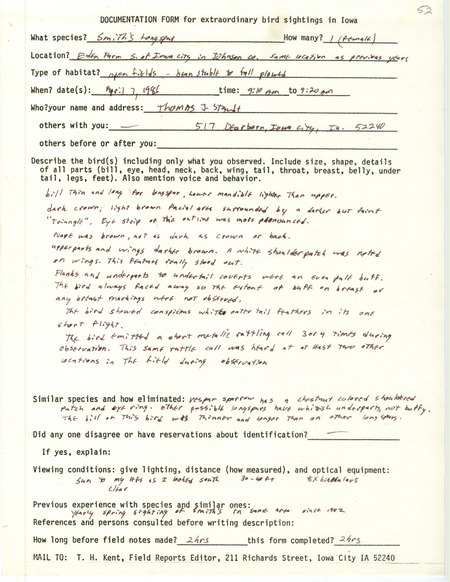 52
DOCUMENTATION FORM for extraordinary bird sightings in Iowa
What species? Smith's Longspur How many? 1 (female)
Location? Eden Farm S. of Iowa City in Johnson co. same location as previous years
Type of habitat? open fields - bean stubble & fall plowed
When? date(s): April 7, 1986 time: 9:10 AM to 9:20 am
Who?your name and address: Thomas J. Staudt
others with you: — 517 Dearborn, Iowa City, Ia. 52240
others before or after you:
Describe the bird(s) including only what you observed. Include size, shape, details
of all parts (bill, eye, head, neck, back, wing, tail, throat, breast, belly, under
tail, legs, feet). Also mention voice and behavior.
bill thin and long for longspur, lower mandible lighter than upper.
dark crown, light brown facial area surrounded by a darker but faint
"triangle", Eye strip of this outline was more pronounced.
Nape was brown, not as dark as crown or back.
upperparts and wings darker brown. A white shoulder patch was noted
on wings. This feature really stood out.
Flanks and underparts to undertail coverts were an even pale buff.
The bird always faced away so the extent of buff on breast or
any breast markings were not observed.
The bird showed conspicuous white outer tail feathers in its one
short flight.
The bird emitted a short metalic rattling call 3 or 4 times during
observation. This same rattle call was heard at at least two other
locations in the field during observation
Similar species and how eliminated: vesper sparrow has a chestnut colored shoulder
patch and eye ring. other possible longspurs have whitish underparts, not buffy.
The bill on this bird was thinner and longer than on other longspurs.
Did any one disagree or have reservations about identification? —
If yes, explain:
Viewing conditions: give lighting, distance (how measured), and optical equipment:
sun to my left as I looked south 30-40 ft 8X binoculars
clear
Previous experience with species and similar ones:
yearly spring sighting of Smith's in same area since 1982
References and persons consulted before writing description:
How long before field notes made? 2 hrs this form completed? 2 hrs
MAIL TO: T. H. Kent, Field Reports Editor, 211 Richards Street, Iowa City IA 52240